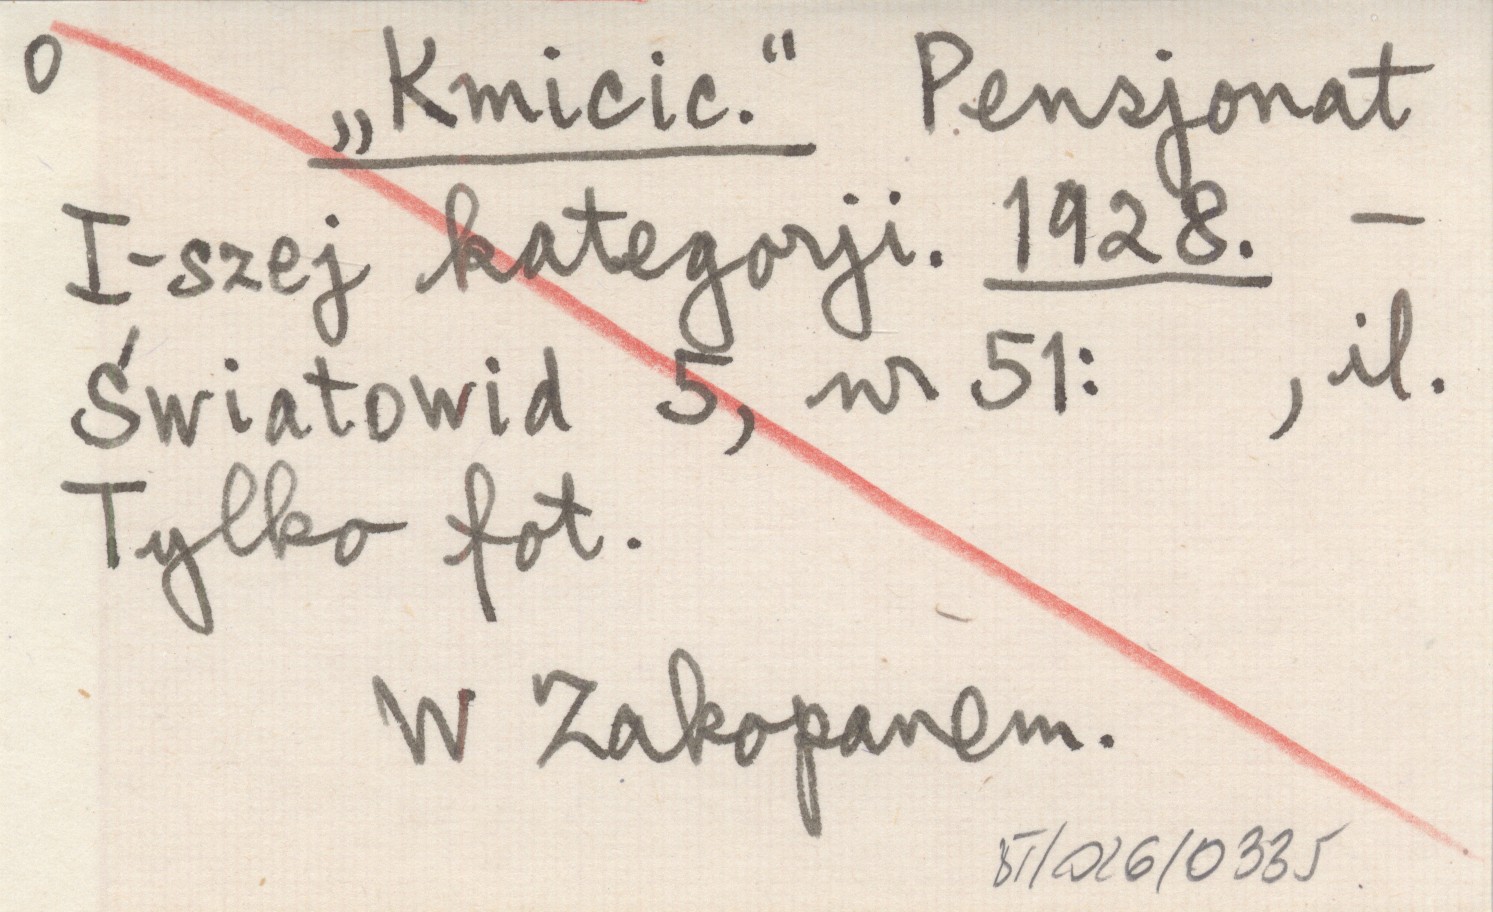 0 „Kmicic.“ Pensjonat
I-szej kategorji. 1928. –
Światowid 5, nr 51: , il.
Tylko fot.
W Zakopanem.